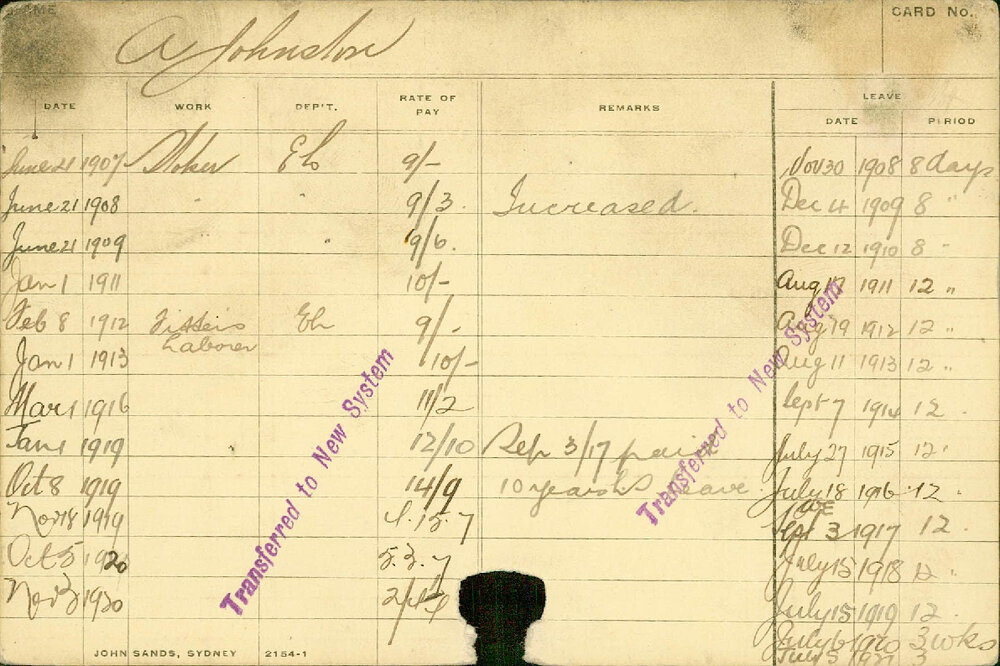 NAME CARD No.
A Johnston
DATE WORK DEP'T. RATE OF PAY REMARKS LEAVE DATE PERIOD
June 21 1907 Stoker El 9/- Nov 30 1908 8 days
June 21 1908 " " 9/3 Increased. Dec 4 1909 8 "
June 21 1909 " 9/6. Dec 12 1910 8 "
Jan 1 1911 10/- Aug 1911 12 "
Feb 8 1912 Fitters Laborer El 9/- Aug 19 1912 12 "
Jan 1 1913 10/- Aug 11 1913 12 "
Mar 1 1916 11/2 Sept 7 1914 12 "
Jan 1 1919 12/10 Sep 3/17 July 27 1915 12 "
Oct 8 1919 14/9 10 years leave July 18 1916 12 "
Nov 18 1919 4.15.7 Sept 3 1917 12 "
Oct 5 1920 5.3.7 July 15 1918 12 "
Nov 1920 July 15 1919 12
July 6 1920 3 wks
July 5
Transferred to New System
Transferred to New System
JOHN SANDS, SYDNEY 2154-1